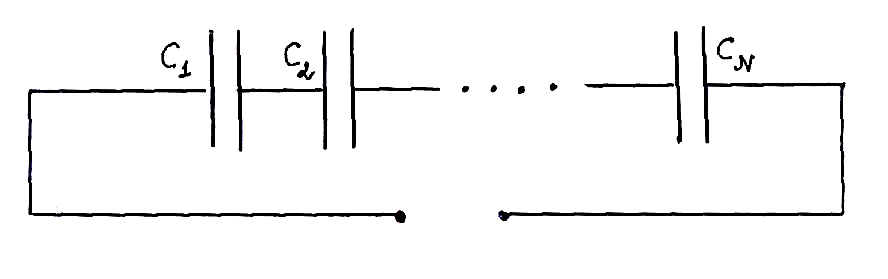 C₁ C₂ . . . . C_N